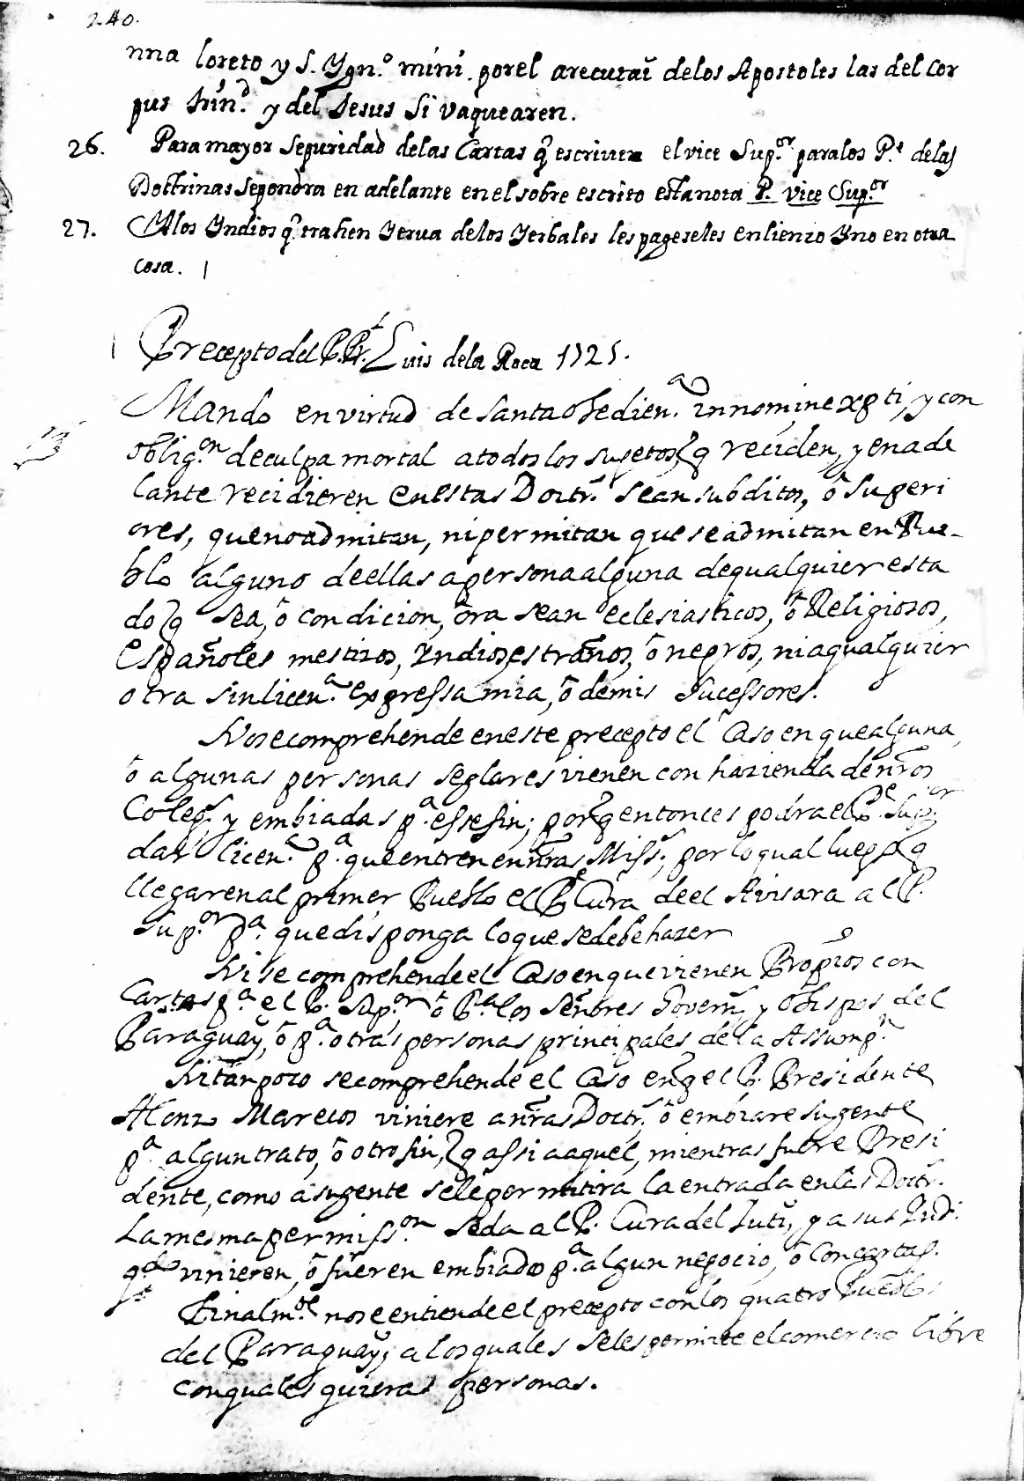 240.
nna loreto y S. Ygn.º mini. por el arecutaî de los Apostoles las del Cor
pus Trin.d y del Jesus si vaquearen.
26. Para mayor Seguridad de las Cartas q̃ escriviere el vice Sup.or para los P.s de las
Doctrinas se pondra en adelante en el sobre escrito esta nota P. vice Sup.or
27. A los Yndios q̃ trahen Yerva de los Yerbales les pageseles en lienzo Y no en otra
cosa.
Precepto del P. Pr.l Luis de la Roca 1725.
Mando en virtud de santa obedien.a in nomine xpti, y con
oblig.on de culpa mortal a todos los sujetos, q̃ reciden, y en ade
lante recidieren en estas Doctr.s sean subditos, ô superi
ores, que no admitan, ni permitan que se admitan en Pue-
blo alguno de ellas a persona alguna de qualquier esta
do q̃ sea, ô condicion, ôra sean eclesiasticos, ô Religiosos,
españoles mestizos, Yndios estraños, ô negros, ni a qualquier
otra sin licen.a expressa mia, ô de mis sucessores.
No se comprehende en este precepto el Caso en que alguna,
ô algunas personas seglares vienen con hazienda de nr̃os
Coleg.s y embiadas p.a esse fin; porq̃ entonces podra el P.e Sup.or
dar licen.a p.a que entren en nr̃as Miss.s, por lo qual luego q̃
llegaren al primer Pueblo el P.e Cura de el Avisara al P.
Sup.or p.a que disponga lo que se debe hazer
Ni se comprehende el Caso en que vienen Propios con
Cartas p.a el P. Sup.or ô P.a los Señores Govern.s y Obispos del
Paraguay, ô p.a otras personas principales de la Assump.n
Ni tampoco se comprehende el Caso en q̃ el P. Presidente
Alonz Marcos viniere a nr̃as Doctr.s ô embiare su gente
p.a algun trato, ô otro fin, q̃ assi a aquel, mientras fuere Presi
dente, como a su gente se le permitira la entrada en las Doctr.s
La mesma permiss.on se da al P. Cura del Jutî, y a sus Ind.s
q.do vinieren, ô fueren embiados p.a algun negocio, ô Con cartas.
Finalm.te no se entiende el precepto con los quatro Pueblos
del Paraguay, a los quales se les permite el comercio libre
con quales quieras personas.